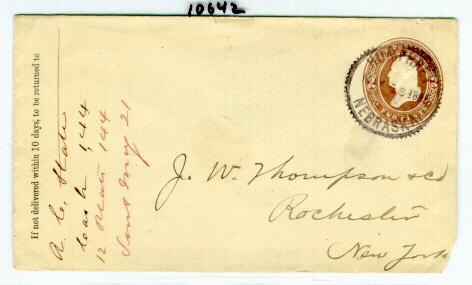 10642
If not delivered within 10 days, to be returned to
A. C. State
Cash 1.44
12 Plates 144
Sent May 21
NEBRASKA
J. W. Thompson & Co
Rochester
New York